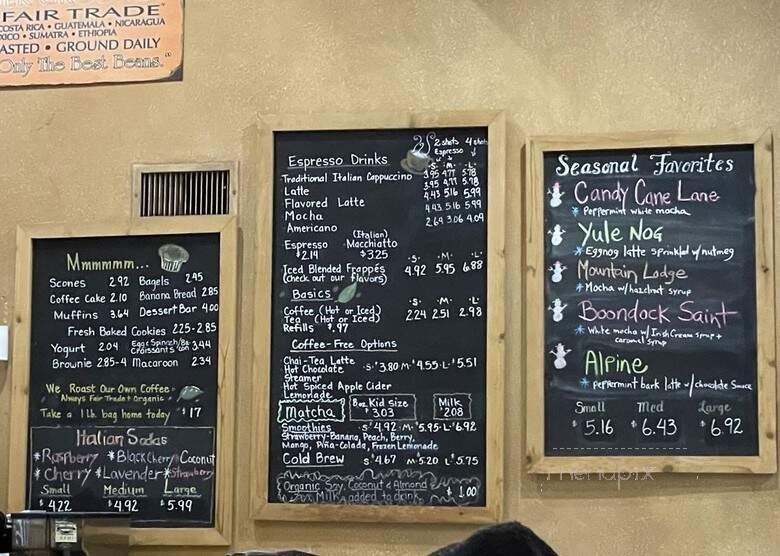 FAIR TRADE"
COSTA RICA • GUATEMALA • NICARAGUA
MEXICO • SUMATRA • ETHIOPIA
ASTED • GROUND DAILY
Only The Best Beans."
Mmmmmm...
Scones 2.92 Bagels 2.45
Coffee Cake 2.10 Banana Bread 2.85
Muffins 3.64 Dessert Bar 4.00
Fresh Baked Cookies 2.25-2.85
Yogurt 2.04 Egg & Spinach/Ba
Croissants 3.44
Brownie 2.85-4 Macaroon 2.34
We Roast Our Own Coffee
Always Fair Trade + Organic
Take a 1 lb. bag home today $17
Italian Sodas
*Raspberry *Black Cherry *Coconut
*Cherry *Lavender *Strawberry
Small Medium Large
$4.22 $4.92 $5.99
2 shots 4 shots
Espresso
Espresso Drinks
·S· ·M· ·L·
Traditional Italian Cappuccino 3.95 4.77 5.78
Latte 3.95 4.77 5.78
Flavored Latte 4.43 5.16 5.99
Mocha 4.43 5.16 5.99
Americano 2.69 3.06 4.09
Espresso (Italian) Macchiato
$2.14 $3.25
·S· ·M· ·L·
Iced Blended Frappés 4.92 5.95 6.88
(Check out our flavors)
Basics
·S· ·M· ·L·
Coffee (Hot or Iced) 2.24 2.51 2.98
Tea (Hot or Iced)
Refills $.97
Coffee-Free Options
Chai-Tea Latte
Hot Chocolate ·S·$3.80 ·M·$4.55 ·L·$5.51
Steamer
Hot Spiced Apple Cider
Lemonade
Matcha 8oz. Kid Size $3.03 Milk $2.08
Smoothies ·S·$4.92 ·M·$5.95 ·L·$6.92
Strawberry-Banana, Peach, Berry,
Mango, Piña-Colada, Frozen Lemonade
Cold Brew ·S·$4.67 ·M·5.20 ·L·5.75
Organic Soy, Coconut & Almond
Milk added to drink $1.00
Seasonal Favorites
Candy Cane Lane
*Peppermint white mocha
Yule Nog
*Eggnog latte sprinkled w/nutmeg
Mountain Lodge
*Mocha w/hazelnut syrup
Boondock Saint
*White mocha w/Irish Cream syrup +
caramel syrup
Alpine
*Peppermint bark latte w/chocolate sauce
Small Med Large
$5.16 $6.43 $6.92
menupix